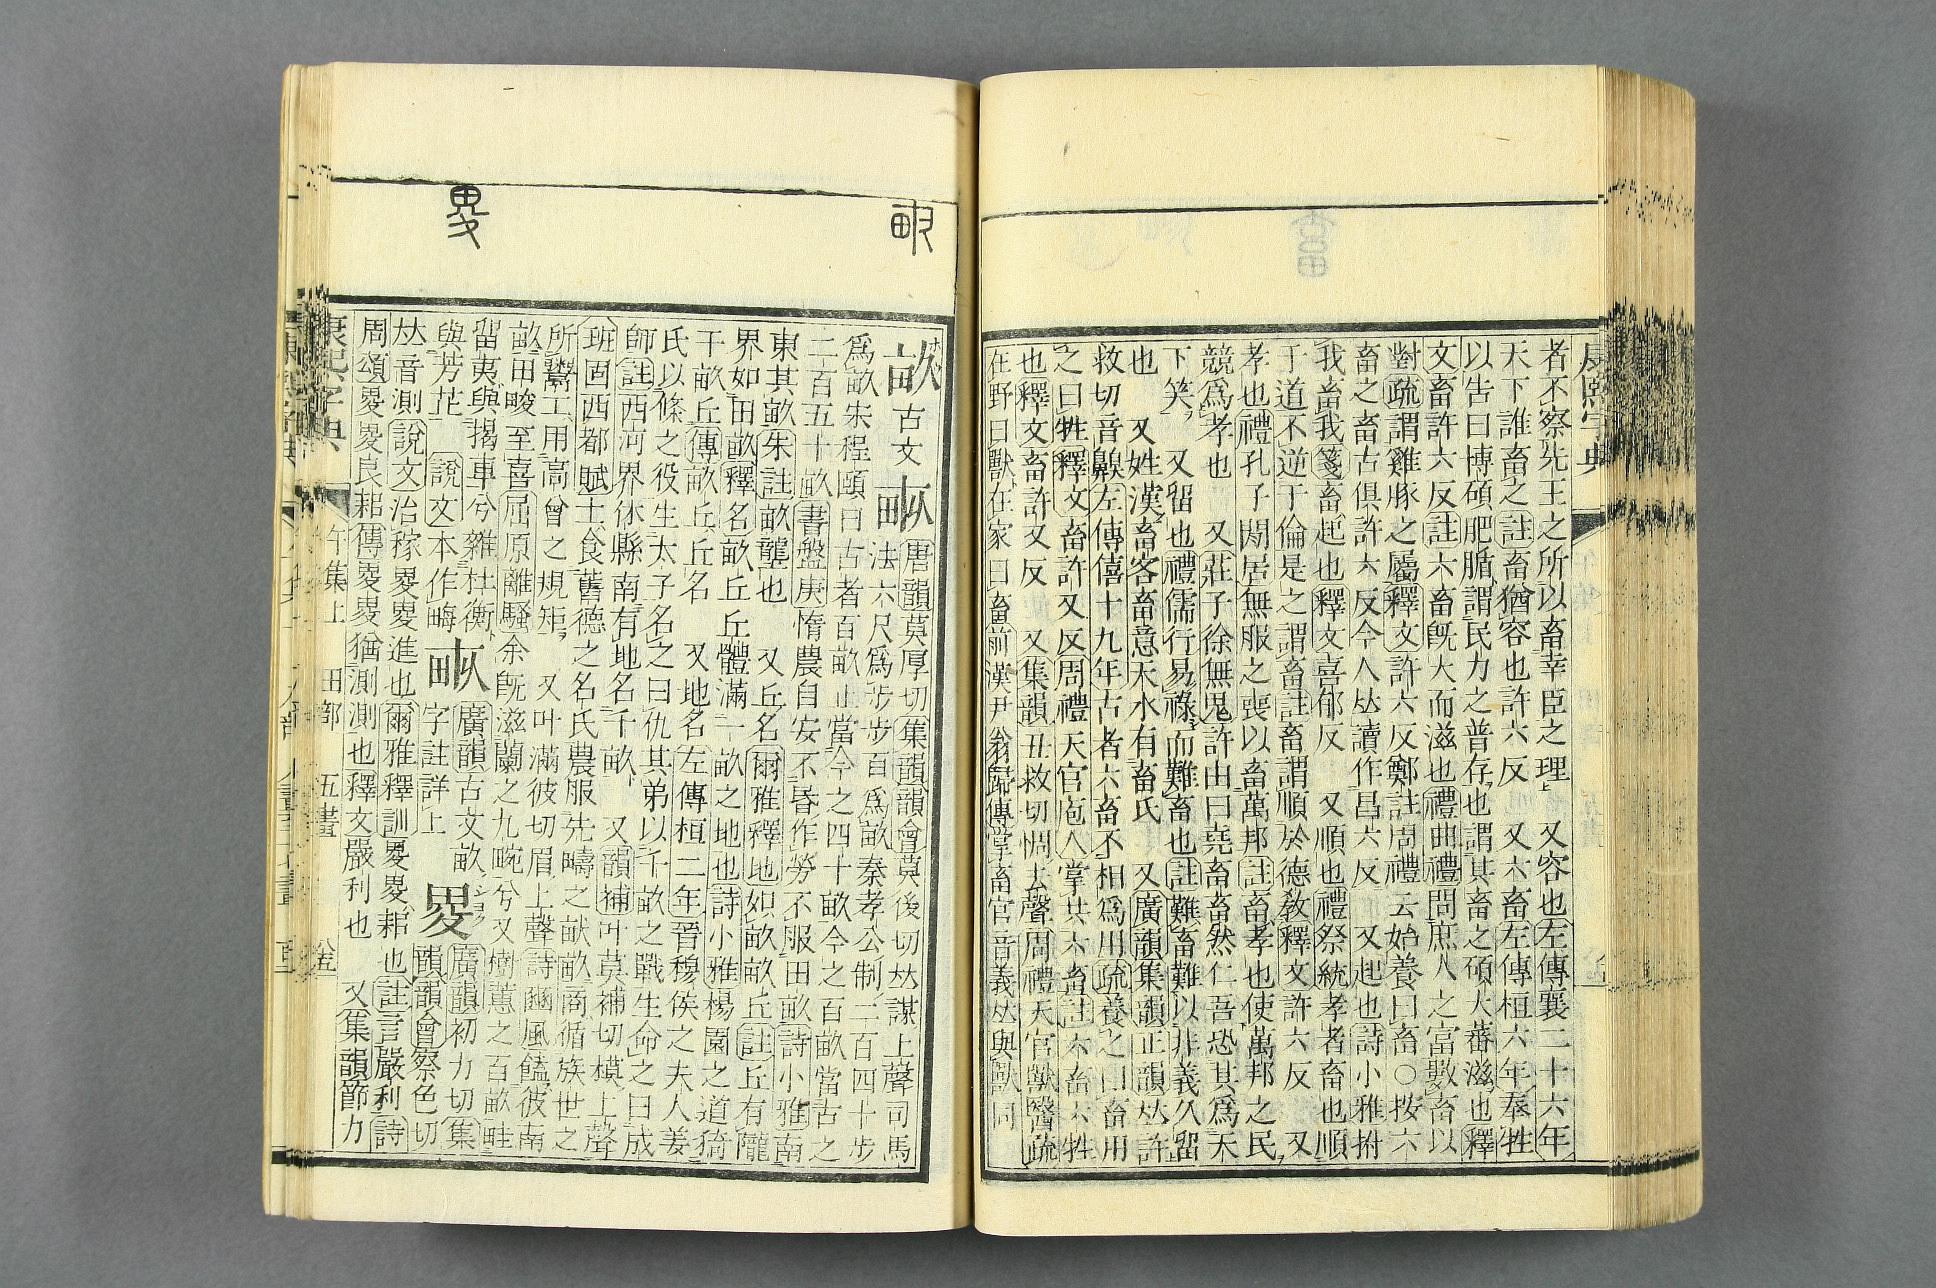 康熙字典
者不察先王之所以畜幸臣之理 又容也左傳襄二十六年
天下誰畜之註畜猶容也許六反 又六畜左傳桓六年奉牲
以告曰博碩肥腯謂民力之普存也謂其畜之碩大蕃滋也釋
文畜許六反註六畜旣大而滋也禮曲禮問庶人之富數畜以
對疏謂雞豚之屬釋文許六反鄭註周禮云始養曰畜○按六
畜之畜古俱許六反今人𠀤讀作昌六反 又起也詩小雅拊
我畜我箋畜起也釋文喜郁反 又順也禮祭統孝者畜也順
于道不逆于倫是之謂畜註畜謂順於德敎釋文許六反 又
孝也禮孔子閒居無服之喪以畜萬邦註畜孝也使萬邦之民
競爲孝也 又莊子徐無鬼許由曰堯畜畜然仁吾恐其爲天
下笑 又留也禮儒行易祿而難畜也註難畜難以非義久留
也 又姓漢畜客畜意天水有畜氏 又廣韻集韻正韻𠀤許
救切音齅左傳僖十九年古者六畜不相爲用疏養之曰畜用
之曰牲釋文畜許又反周禮天官庖人掌共六畜註六畜六牲
也釋文畜許又反 又集韻丑救切惆去聲周禮天官獸醫疏
在野曰獸在家曰畜前漢尹翁歸傳掌畜官音義𠀤與嘼同
畟
畝古文畂唐韻莫厚切集韻韻會莫後切𠀤謀上聲司馬
法六尺爲步步百爲畝秦孝公制二百四十步
爲畝朱程頤曰古者百畝止當今之四十畝今之百畝當古之
二百五十畝書盤庚惰農自安不昏作勞不服田畝詩小雅南
東其畝朱註畝壟也 又丘名爾雅釋地如畝畝丘註丘有隴
界如田畝釋名畝丘丘體滿一畝之地也詩小雅楊園之道猗
于畝丘傳畝丘丘名 又地名左傳桓二年晉穆侯之夫人姜
氏以條之役生太子名之曰仇其弟以千畝之戰生命之曰成
師註西河界休縣南有地名千畝 又韻補叶莫補切模上聲
班固西都賦士食舊德之名氏農服先疇之畎畝商循族世之
所鬻工用高曾之規矩 又叶滿彼切眉上聲詩豳風饁彼南
畝田畯至喜屈原離騷余旣滋蘭之九畹兮又樹蕙之百畝畦
留夷與揭車兮雜杜衡
與芳芷 說文本作畮
畂廣韻古文畝
字註詳上
畟廣韻初力切集
韻韻會察色切
𠀤音測說文治稼畟畟進也爾雅釋訓畟畟耜也註言嚴利詩
周頌畟畟良耜傳畟畟猶測測也釋文嚴利也 又集韻節力
康熙字典 午集上 田部 五畫